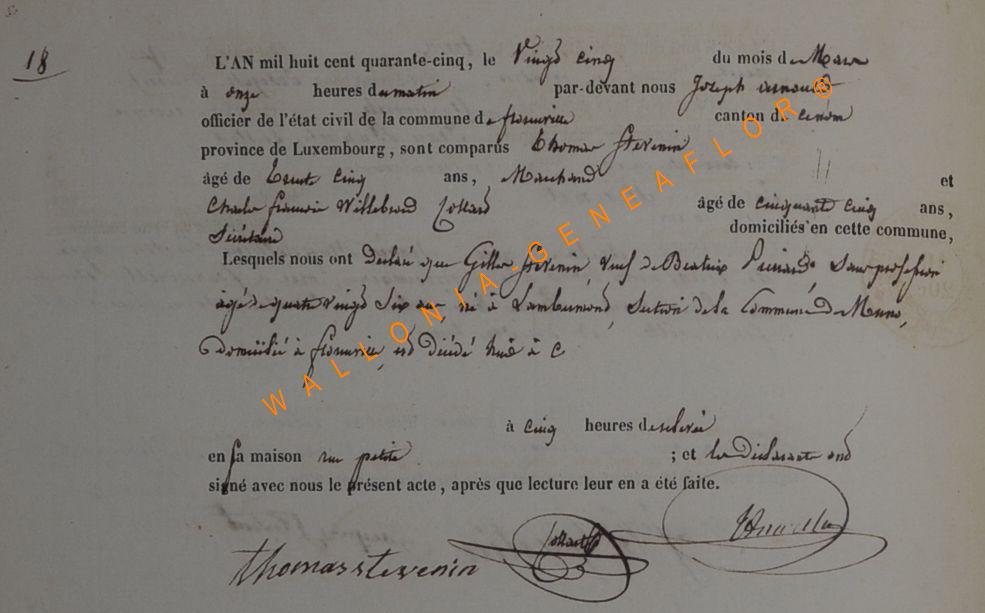 18
L'AN mil huit cent quarante-cinq, le Vingt cinq du mois de Mars
à onze heures du matin par-devant nous Joseph Arnould
officier de l'état civil de la commune de florenville canton de
province de Luxembourg, sont comparus Thomas Stevenin
âgé de Trente Cinq ans, Marchand et
Charles francois Willebrord Collard âgé de cinquante cinq ans,
domiciliés en cette commune,
Lesquels nous ont Déclaré que Gilles Stevenin veuf de Beatrix Sans profession
agé de quatre vingt Six ans, né à Lambermont, Section de la Commune de Muno,
Domicilié à florenville, est Décédé hier à
à Cinq heures de relevée
en sa maison rue petite ; et les Déclarants ont
signé avec nous le présent acte, après que lecture leur en a été faite.
thomas stevenin Collard
WALLONIA-GENEAFLOR®